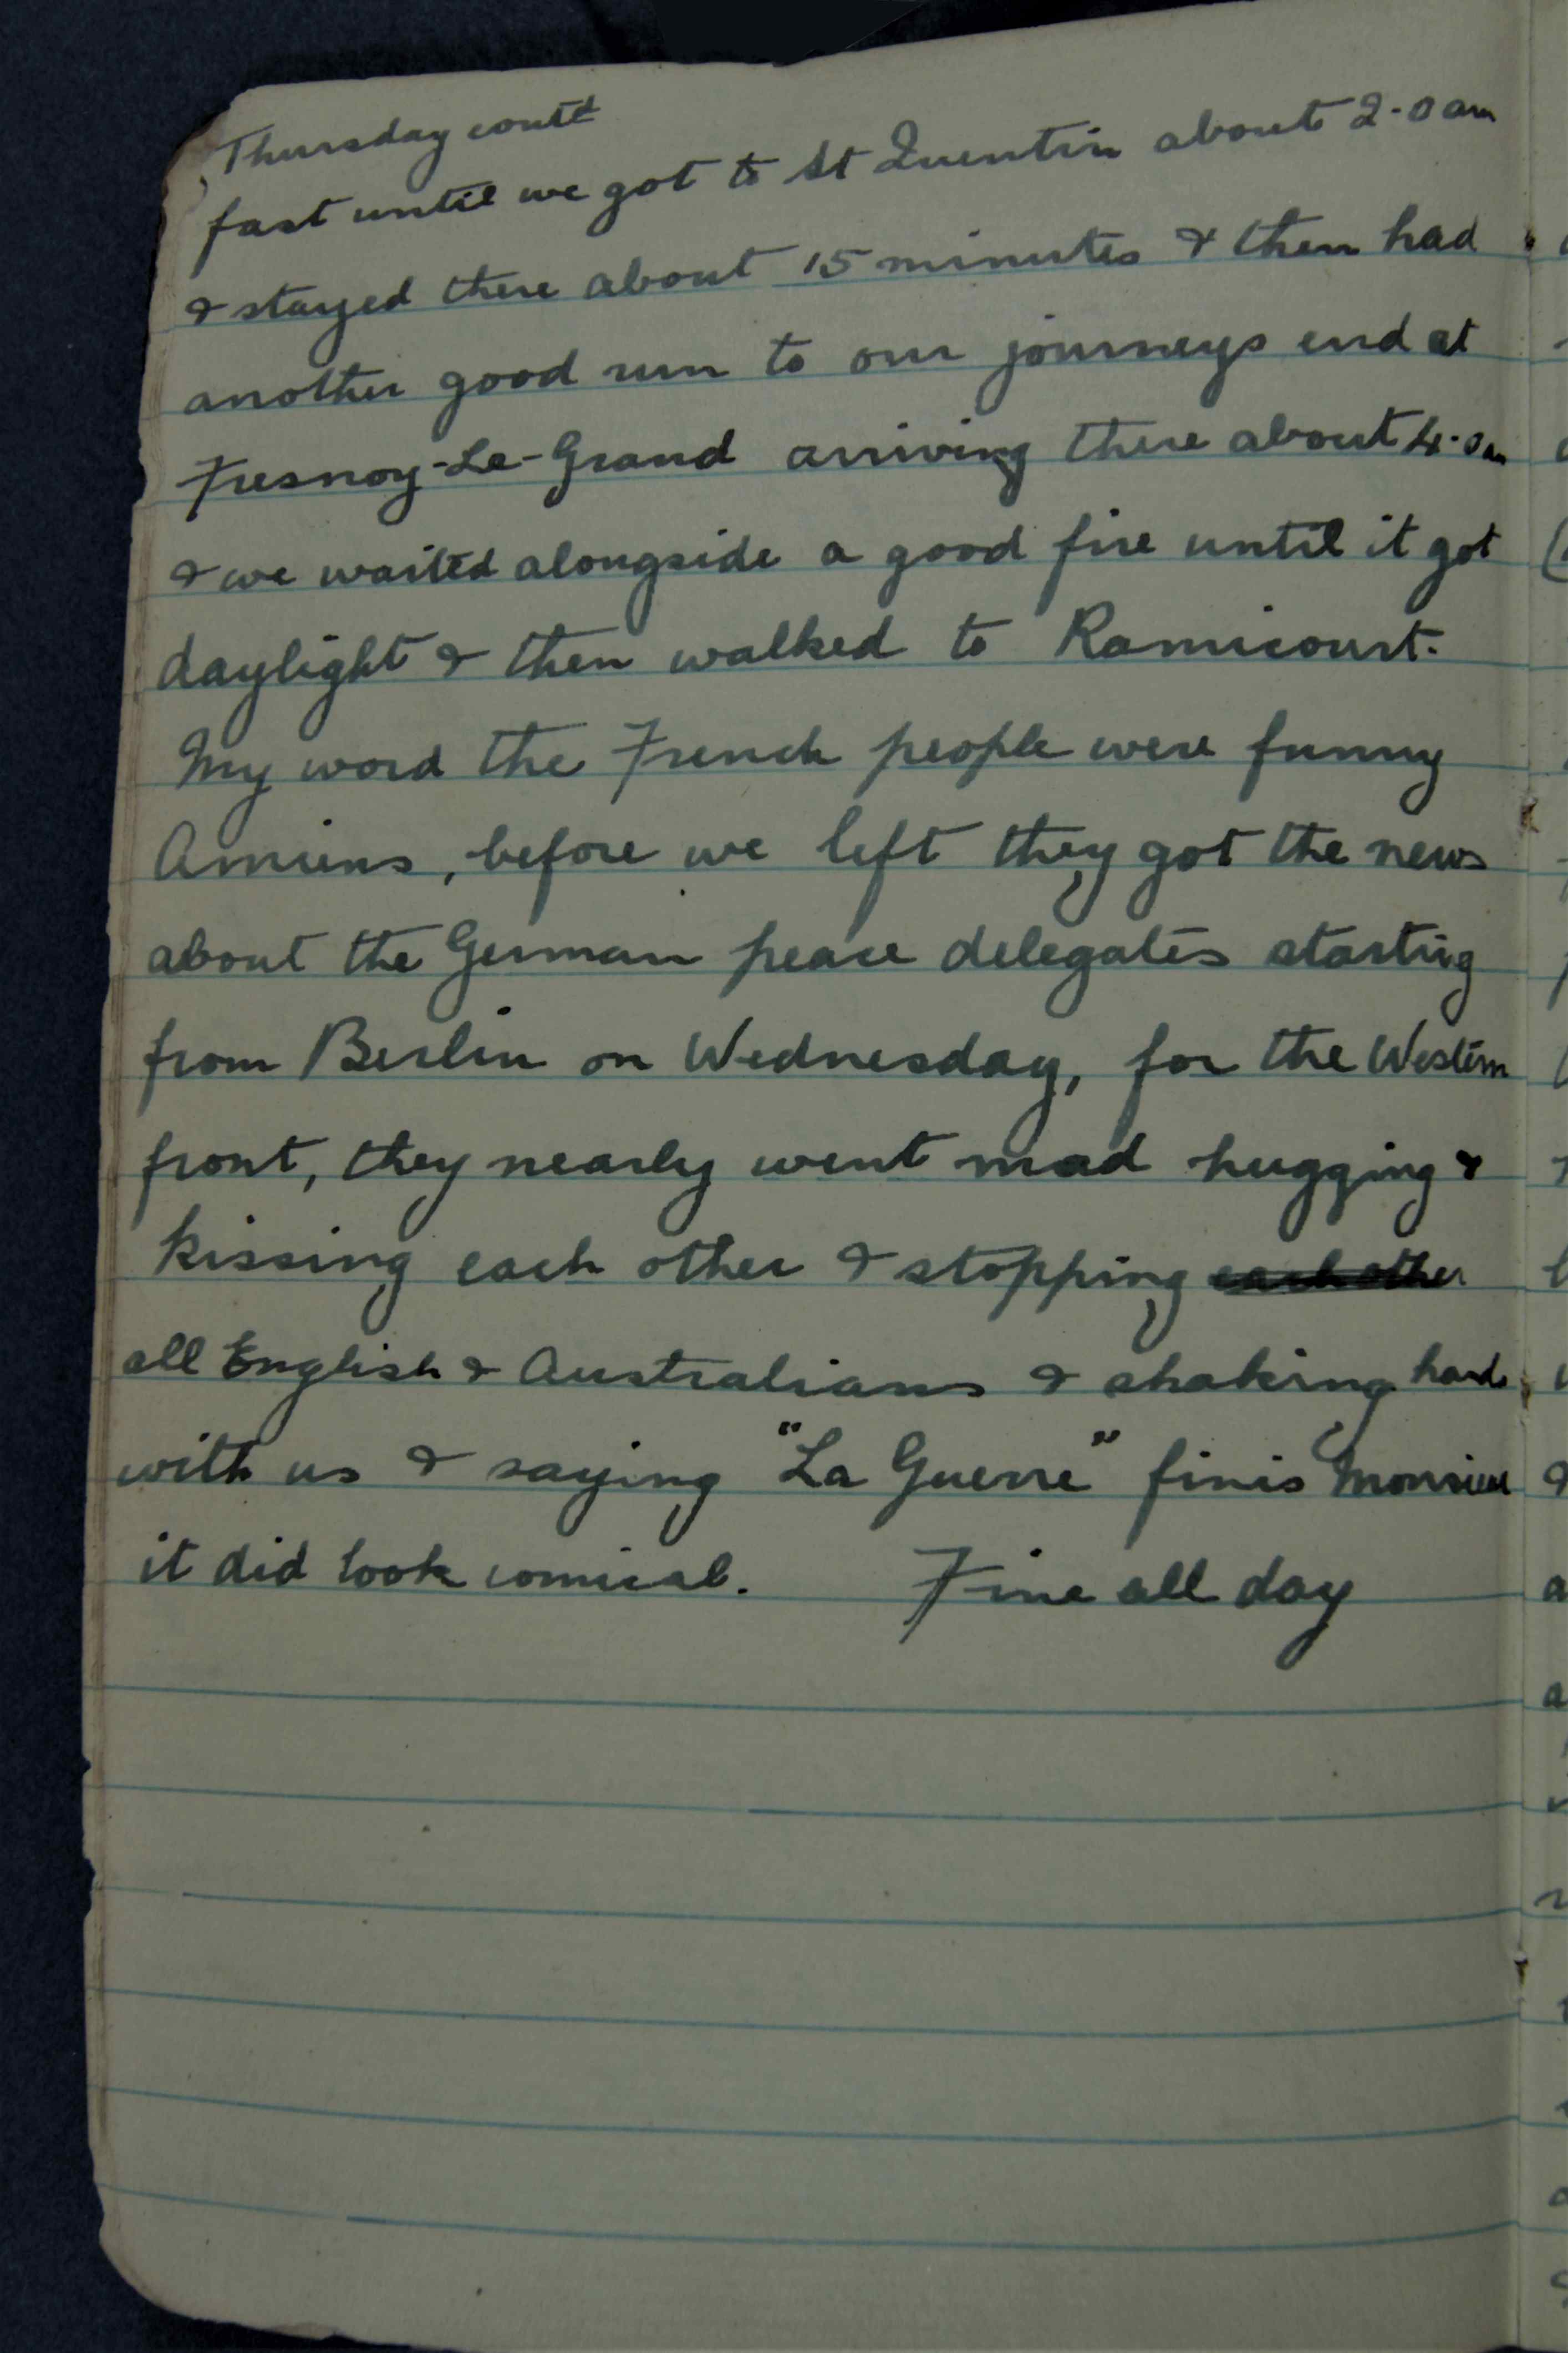 Thursday contd
fast until we got to St Quentin about 2-0 am
& stayed there about 15 minutes & then had
another good run to our journeys end at
Fresnoy-Le-Grand arriving there about 4-0 am
& we waited alongside a good fire until it got
daylight & then walked to Ramicourt.
My word the French people were funny
Amiens, before we left they got the news
about the German peace delegates starting
from Berlin on Wednesday, for the Western
front, they nearly went mad hugging &
kissing each other & stopping each other
all English & Australians & shaking hands
with us & saying "La Guerre" finis Monsieur
it did look comical. Fine all day